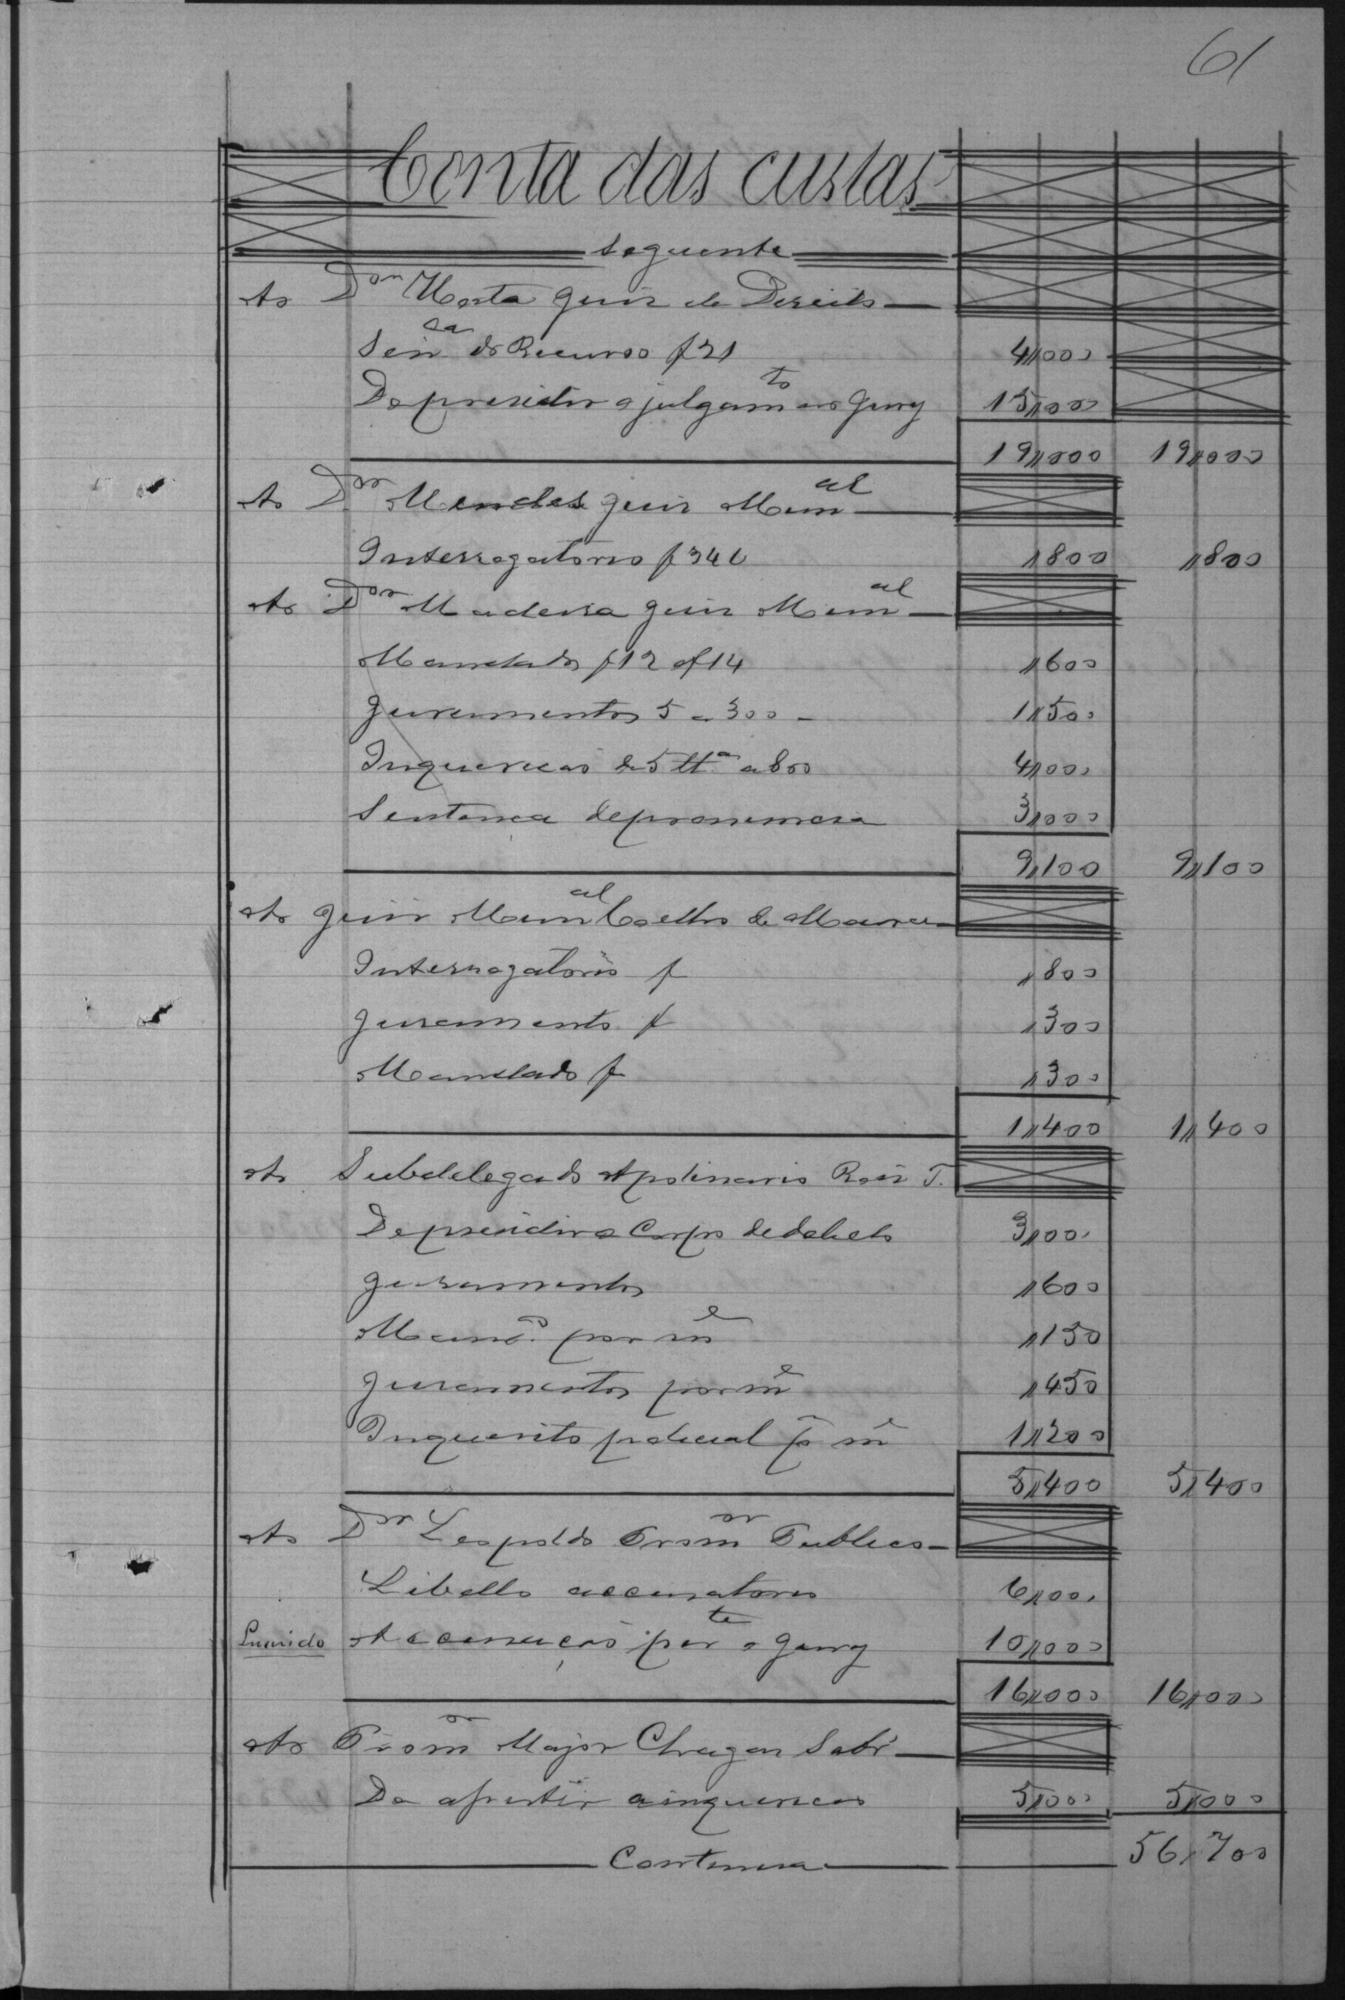 61
Conta das custas
seguente
Ao Dor Horta Juiz de Direito
Senca do Recurso f 21 4,,000
De presidir o julgamto no Jury 15,,000
19,,000 19,,000
Ao Dor Mendes Juiz Munal
Interrogatorio f 34 ,,800 ,,800
Ao Dor Madeira Juiz Munal
Mandados f 12 e f 14 ,,600
Juramentos 5 a 300 1,,500
Inquericao de 5 tta a 800 4,,000
Sentenca de pronuncia 3,,000
9,,100 9,,100
Ao Juiz Munal Coelho de Moura
Interrogatorio f ,,800
Juramento f ,,300
Mandado f ,,300
1,,400 1,,400
Ao Subdelegado Apolinario Roiz T.
De presidir o Corpo de delicto 3,,000
Juramentos ,,600
Mando. por me ,,150
Juramentos por me ,,450
Inquerito policial p me 1,,200
5,,400 5,,400
Ao Dor Leopoldo Promor Publico
Libello accusatorio 6,,000
Accusação perte o Jury 10,,000
16,,000 16,,000
Ao Promor Major Chagas
De assistir a inquericao 5,,000 5,,000
Continua 56,,700